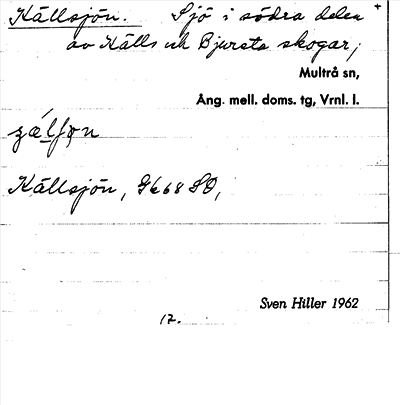 Källsjön. Sjö i södra delen +
av Källs och Bjursta skogar;
Multrå sn,
Ång. mell. doms. tg, Vrnl. l.
Källsjön, Gk 68 SO,
Sven Hiller 1962
17.